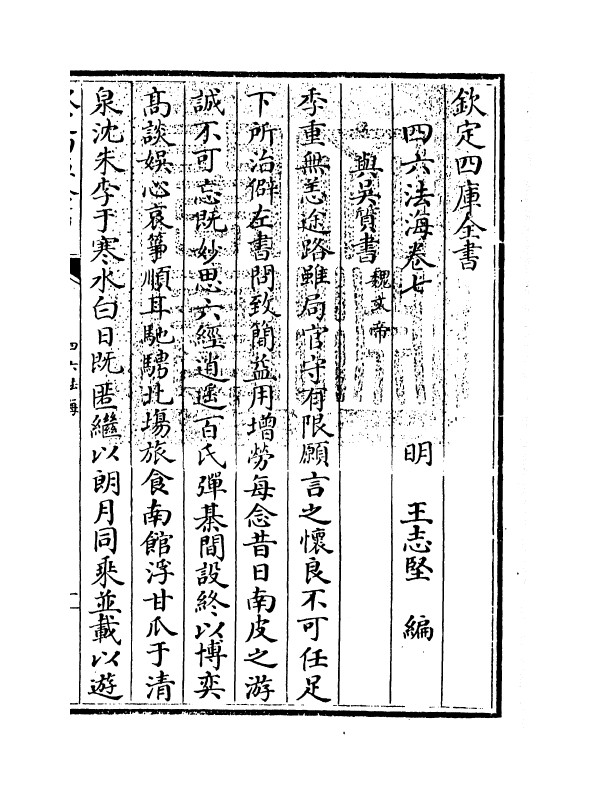 欽定四庫全書
四六法海卷七
明 王志堅 編
與吳質書 魏文帝
季重無恙途路雖局官守有限願言之懷良不可任足
下所治僻左書問致簡益用增勞每念昔日南皮之游
誠不可忘既妙思六經逍遥百氏彈棊間設終以博奕
高談娱心哀箏順耳馳騁北塲旅食南館浮甘瓜于清
泉沈朱李于寒水白日既匿繼以朗月同乘並載以遊
四六法海